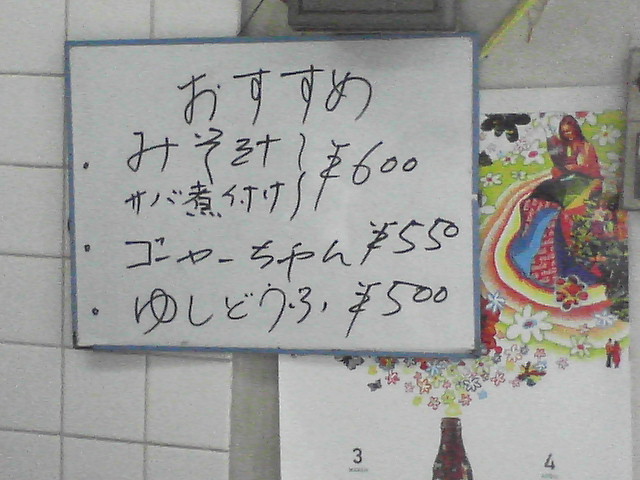 おすすめ
・みそ汁 ¥600
サバ煮付け
・ゴーヤーちゃん ¥550
・ゆしどうふ ¥500
3
4